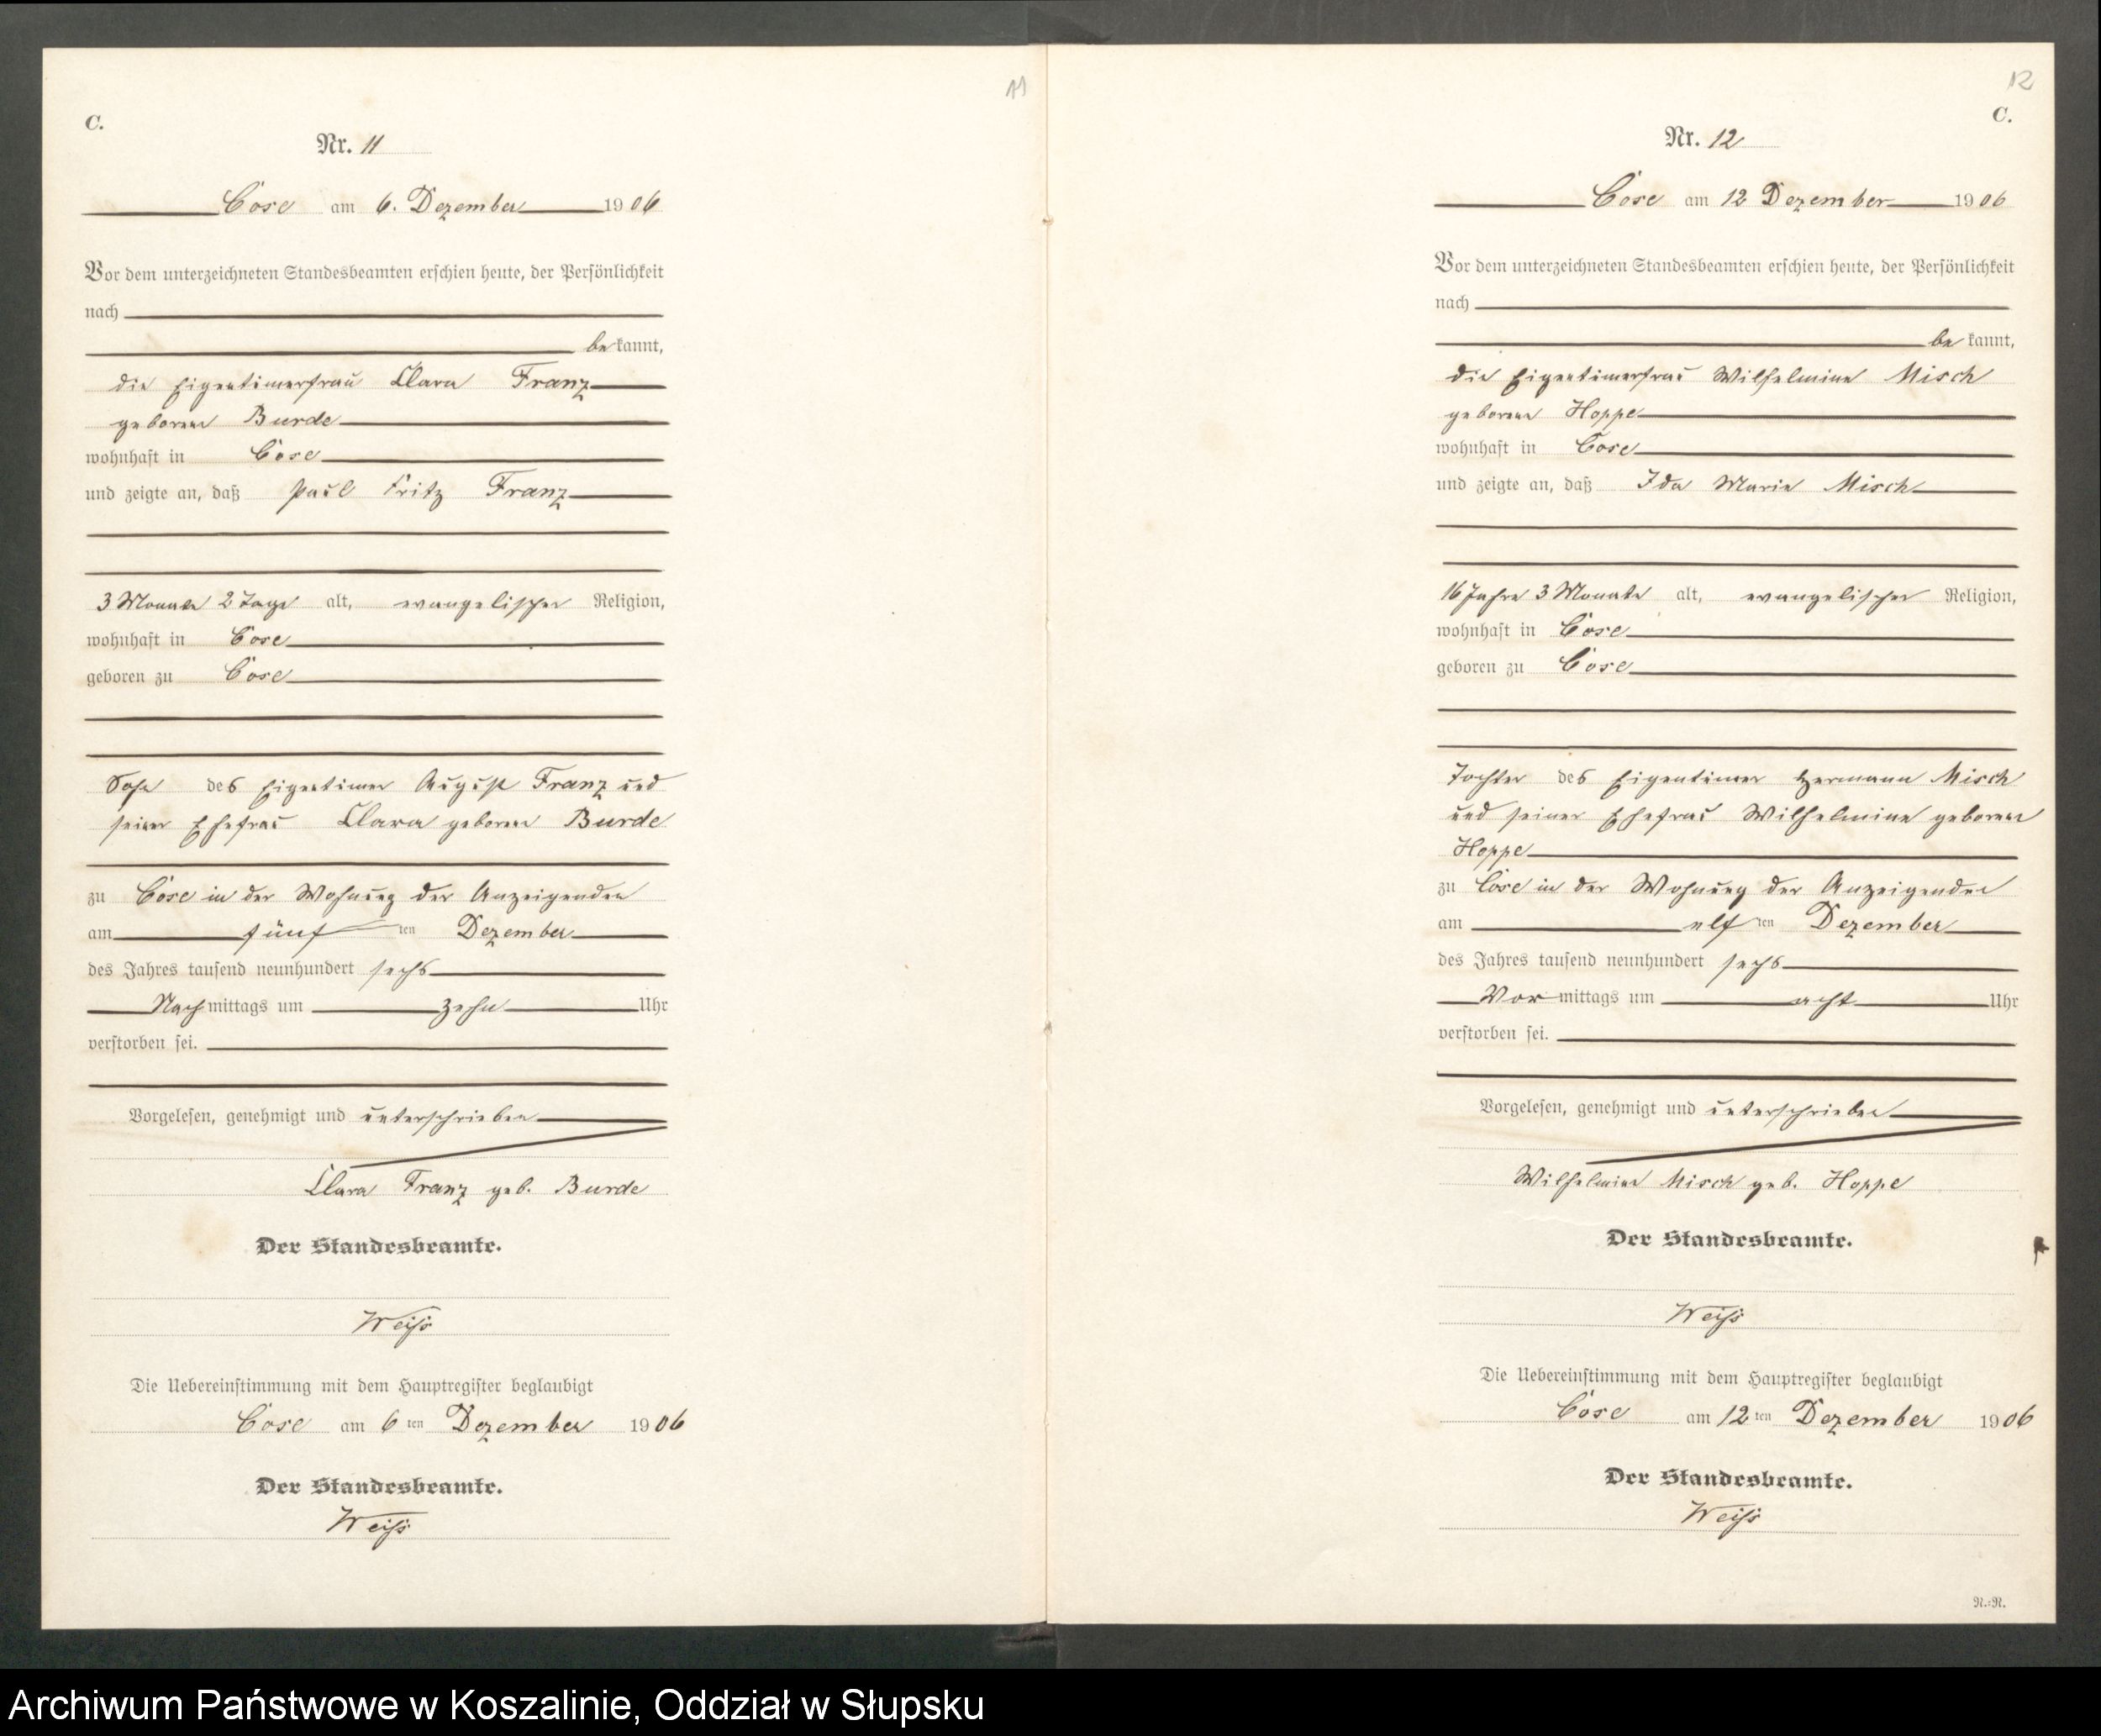 11
C.
Nr. 11
Cose am 6. Dezember 1906
Vor dem unterzeichneten Standesbeamten erschien heute, der Persönlichkeit
nach
be kannt,
die Eigentümerfrau Clara Franz
geborene Burde
wohnhaft in Cose
und zeigte an, daß Paul Fritz Franz
3 Monate 2 Tage alt, evangelischer Religion,
wohnhaft in Cose
geboren zu Cose
Sohn des Eigentümer August Franz und
seiner Ehefrau Clara geborene Burde
zu Cose in der Wohnung der Anzeigenden
am fünf ten Dezember
des Jahres tausend neunhundert sechs
Nach mittags um zehn Uhr
verstorben sei.
Vorgelesen, genehmigt und unterschrieben
Clara Franz geb. Burde
Der Standesbeamte.
Weiß
Die Uebereinstimmung mit dem Hauptregister beglaubigt
Cose am 6 ten Dezember 1906
Der Standesbeamte.
Weiß
12
C.
Nr. 12
Cose am 12 Dezember 1906
Vor dem unterzeichneten Standesbeamten erschien heute, der Persönlichkeit
nach
be kannt,
die Eigentümerfrau Wilhelmine Misch
geborene Hoppe
wohnhaft in Cose
und zeigte an, daß Ida Marie Misch
16 Jahre 3 Monate alt, evangelischer Religion,
wohnhaft in Cose
geboren zu Cose
Tochter des Eigentümer Hermann Misch
und seiner Ehefrau Wilhelmine geborene
Hoppe
zu Cose in der Wohnung der Anzeigenden
am elf ten Dezember
des Jahres tausend neunhundert sechs
Vor mittags um acht Uhr
verstorben sei.
Vorgelesen, genehmigt und unterschrieben
Wilhelmine Misch geb. Hoppe
Der Standesbeamte.
Weiß
Die Uebereinstimmung mit dem Hauptregister beglaubigt
Cose am 12 ten Dezember 1906
Der Standesbeamte.
Weiß
N.:N.
Archiwum Państwowe w Koszalinie, Oddział w Słupsku